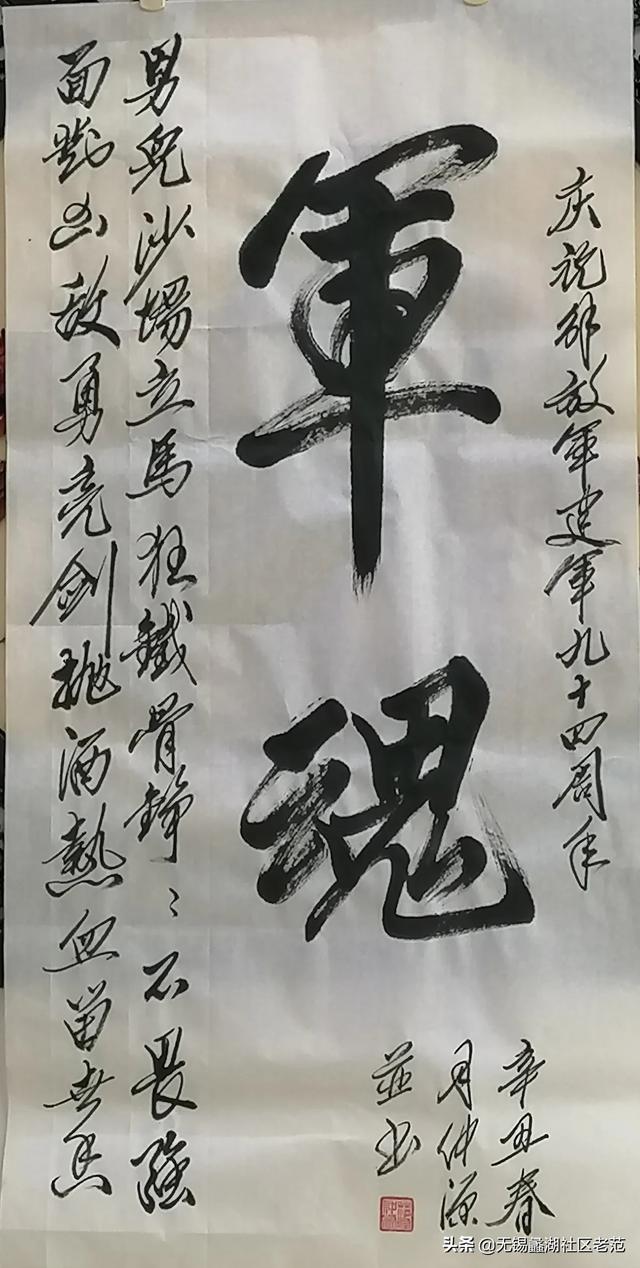 庆祝解放军建军九十四周年
軍魂
男兒沙場立馬狂鐵骨錚〻不畏强
面對凶敌勇亮剑抛洒熱血留世香
辛丑春
月仲源
並书
头条 @无锡蠡湖社区老范